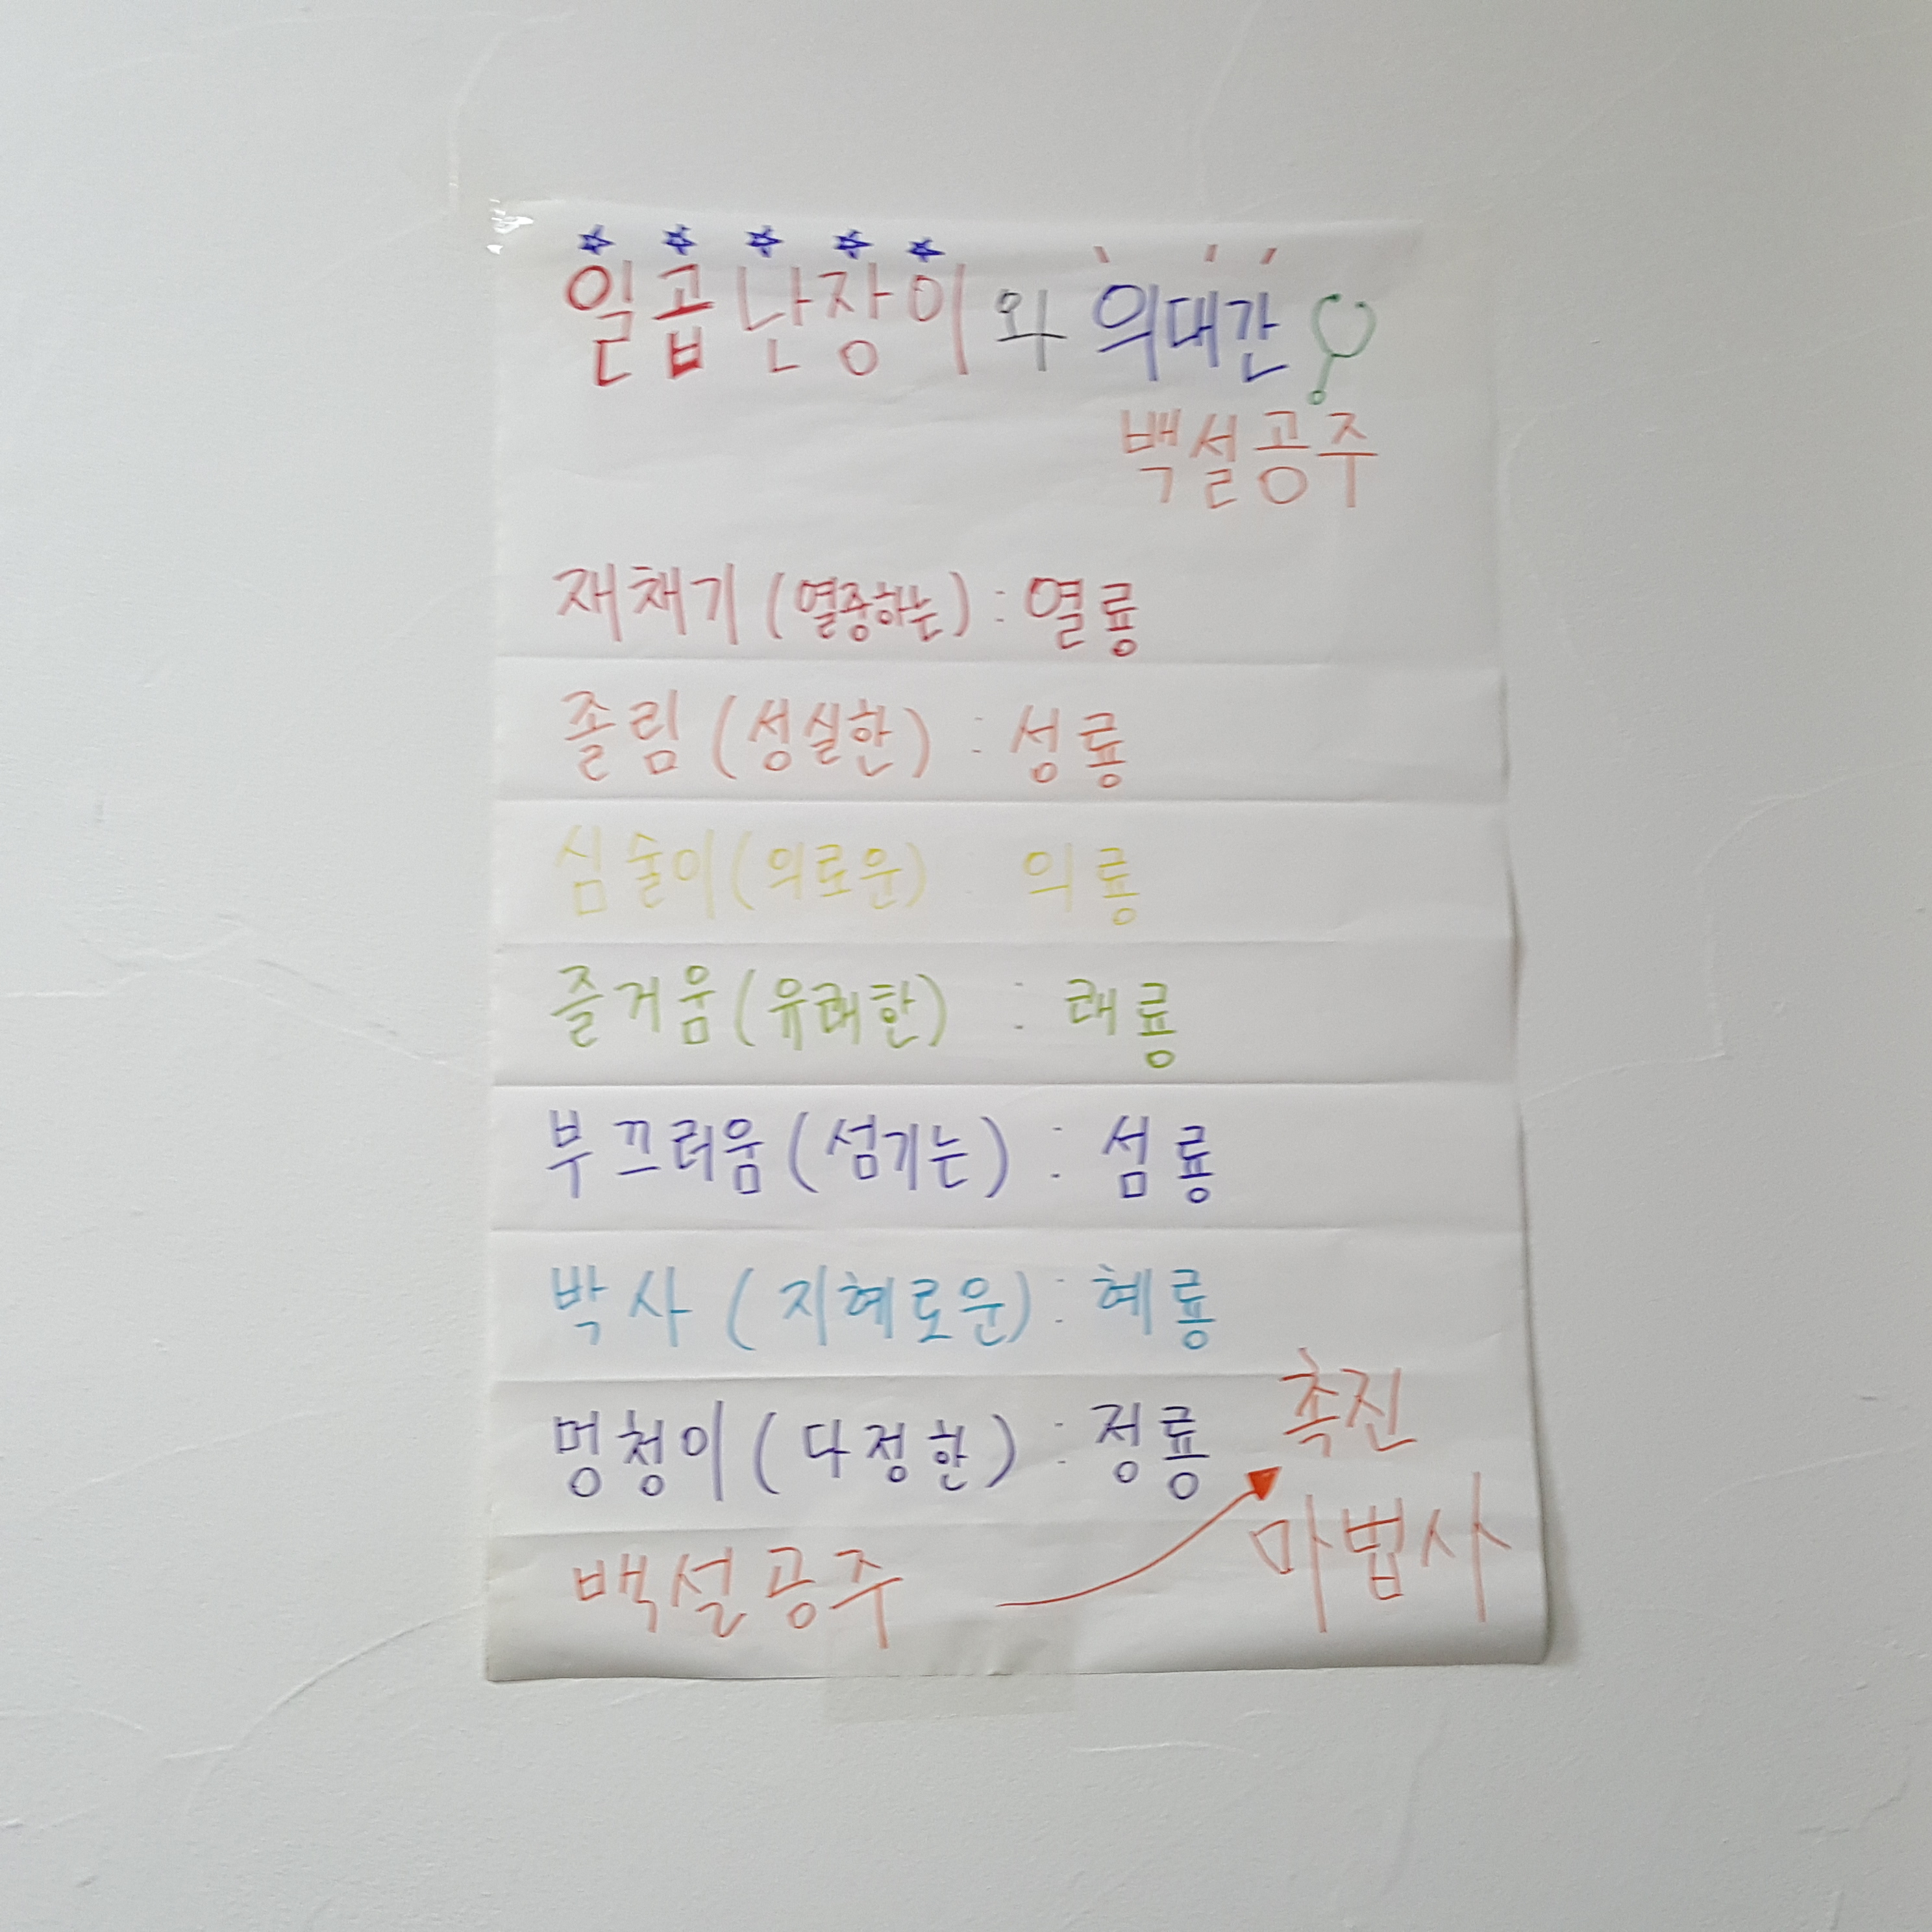 일곱난장이와 의대간
백설공주
재채기 (열중하는) : 열룡
졸림 (성실한) : 성룡
심술이 (의로운) 의룡
즐거움 (유쾌한) : 쾌룡
부끄러움 (섬기는) : 섬룡
박사 (지혜로운) : 혜룡
멍청이 (다정한) : 정룡
촉진
마법사
백설공주